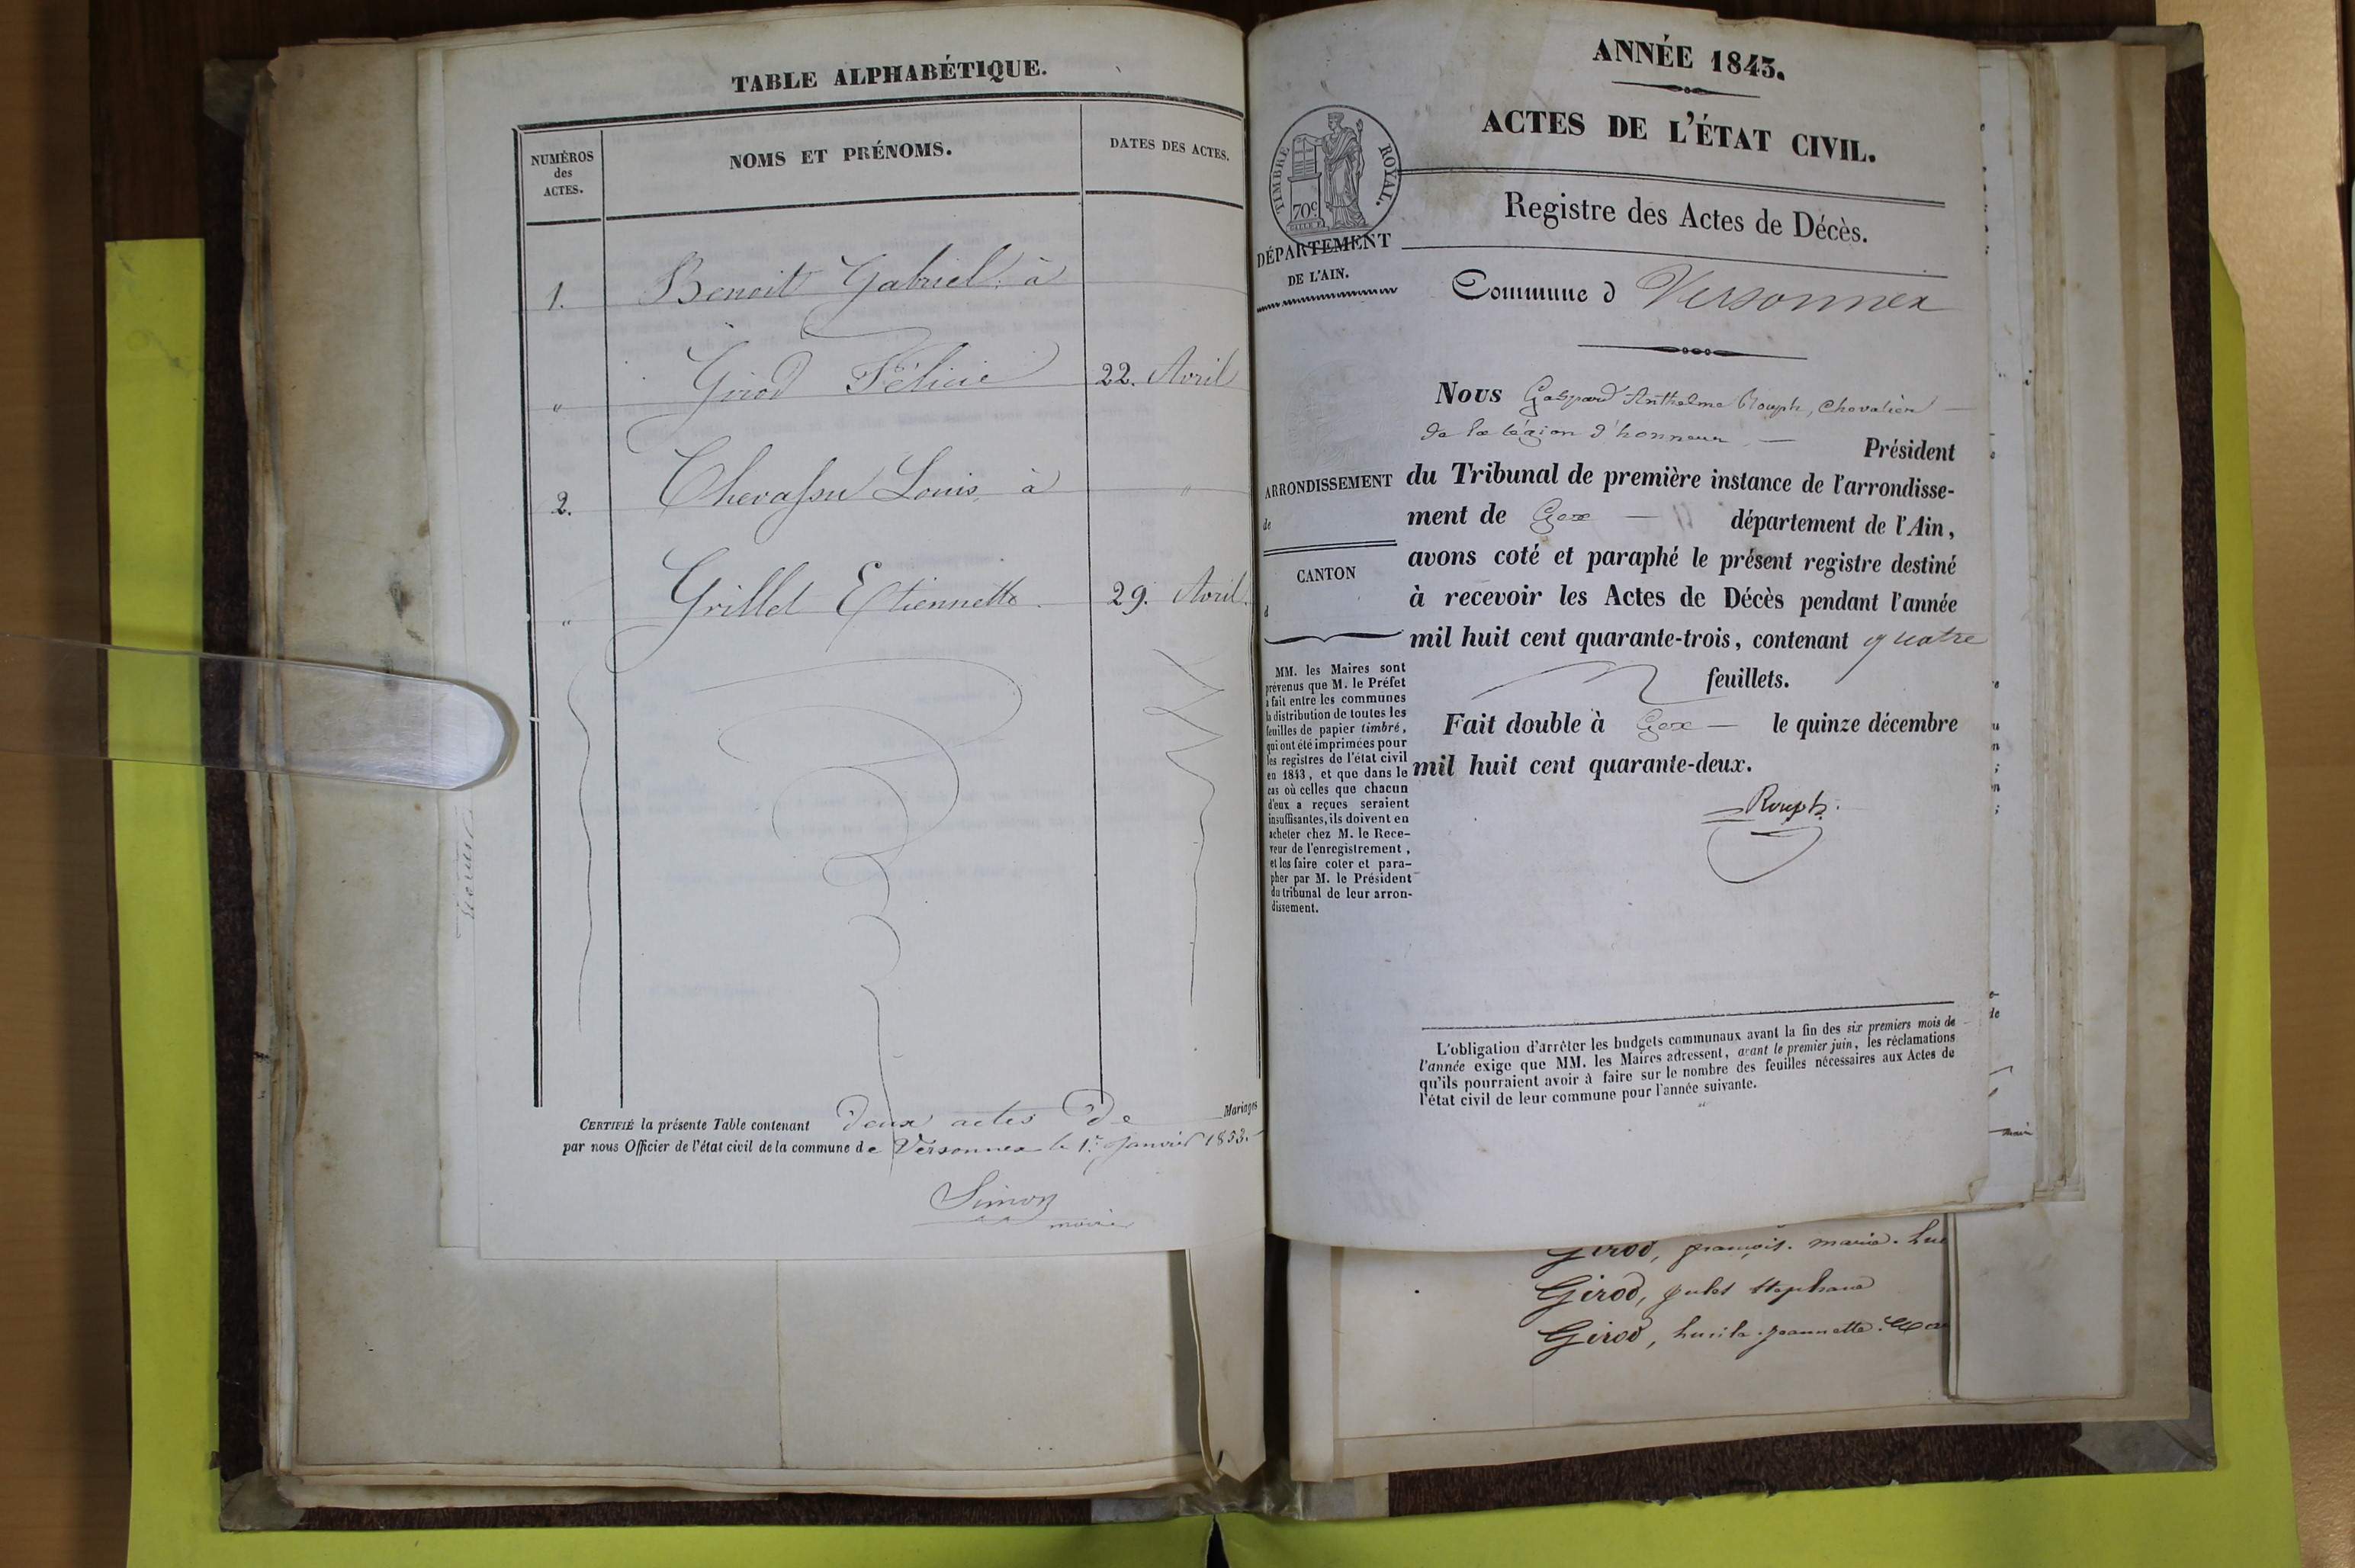 TABLE ALPHABÉTIQUE.
NUMÉROS
des
ACTES.
NOMS ET PRÉNOMS.
DATES DES ACTES.
1. Benoit Gabriel à
" Girod Félicie 22. Avril
2. Chevassu Louis, à "
" Grillet Etiennette 29. Avril.
CERTIFIÉ la présente Table contenant deux actes de Mariages
par nous Officier de l'état civil de la commune de Versonnex le 1er Janvier 1853.
Simon
maire
ANNÉE 1843.
ACTES DE L'ÉTAT CIVIL.
TIMBRE ROYAL.
70c
DÉPARTEMENT
DE L'AIN.
Registre des Actes de Décès.
Commune d Versonnex
Nous Gaspard Anthelme Rouph, Chevalier
de la légion d'honneur — Président
du Tribunal de première instance de l'arrondisse-
ment de Gex — département de l'Ain,
avons coté et paraphé le présent registre destiné
à recevoir les Actes de Décès pendant l'année
mil huit cent quarante-trois, contenant quatre
feuillets.
Fait double à Gex — le quinze décembre
mil huit cent quarante-deux.
Rouph.
ARRONDISSEMENT
de
CANTON
d
MM. les Maires sont
prévenus que M. le Préfet
a fait entre les communes
la distribution de toutes les
feuilles de papier timbré,
qui ont été imprimées pour
les registres de l'état civil
en 1843, et que dans le
cas où celles que chacun
d'eux a reçues seraient
insuffisantes, ils doivent en
acheter chez M. le Rece-
veur de l'enregistrement,
et les faire coter et para-
pher par M. le Président
du tribunal de leur arron-
dissement.
L'obligation d'arrêter les budgets communaux avant la fin des six premiers mois de
l'année exige que MM. les Maires adressent, avant le premier juin, les réclamations
qu'ils pourraient avoir à faire sur le nombre des feuilles nécessaires aux Actes de
l'état civil de leur commune pour l'année suivante.
Girod, françois. marie.
Girod, jules Stephane
Girod, lucile. jeannette.